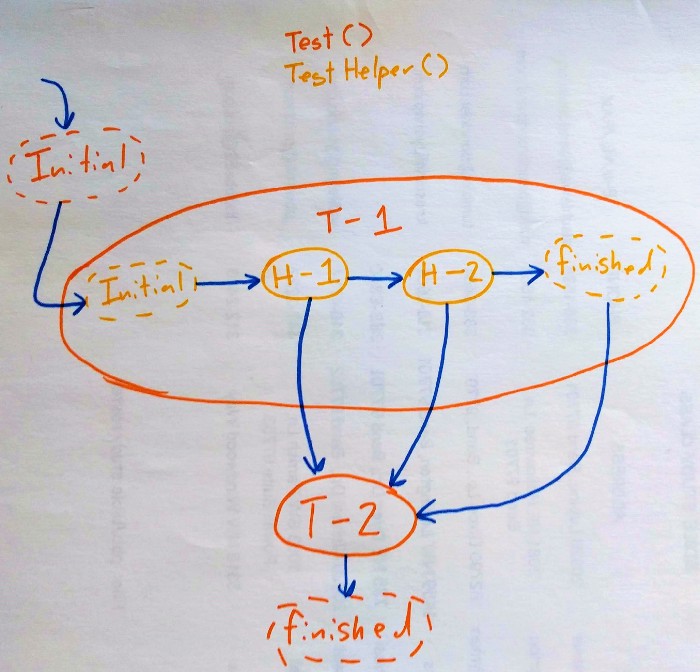 Test()
TestHelper()
Initial
T-1
Initial
H-1
H-2
finished
T-2
finished